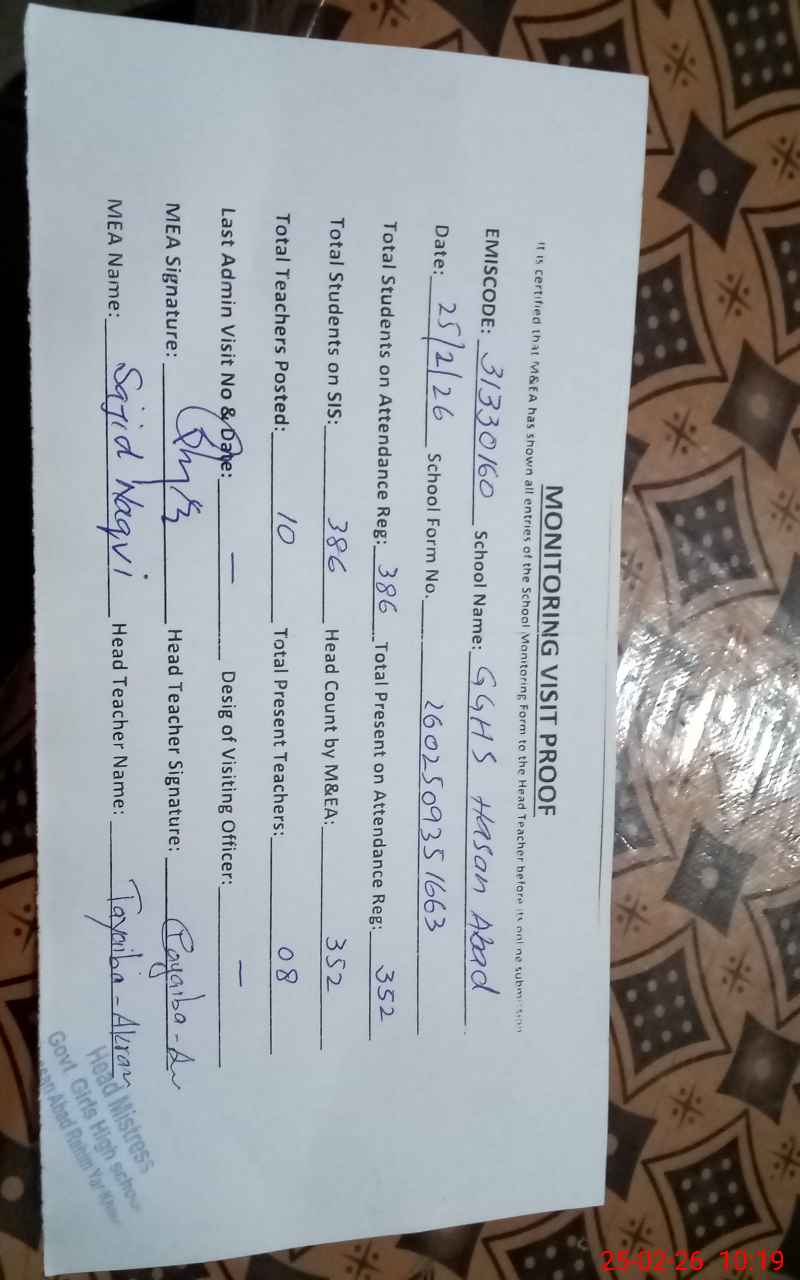 MONITORING VISIT PROOF
It is certified that M&EA has shown all entries of the School Monitoring Form to the Head Teacher before its online submission
EMISCODE: 31330160 School Name: GGHS Hasan Abad
Date: 25/2/26 School Form No. 260250935 1663
Total Students on Attendance Reg: 386 Total Present on Attendance Reg: 352
Total Students on SIS: 386 Head Count by M&EA: 352
Total Teachers Posted: 10 Total Present Teachers: 08
Last Admin Visit No & Date: — Desig of Visiting Officer: —
MEA Signature: Head Teacher Signature: Tayaiba
MEA Name: Sajid Naqvi Head Teacher Name: Tayaiba - Akram
Head Mistress
Govt Girls High School
Abad Rahim Yar Khan
25-02-26 10:19